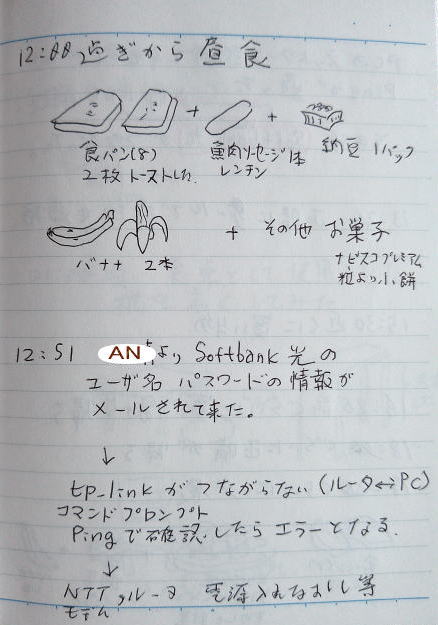 12:00 過ぎから 昼食
+ +
食パン(8) 魚肉ソーセージ1本 納豆 1パック
2枚 トーストした レンチン
+ その他 お菓子
バナナ 2本 ナビスコプレミアム
粒より小餅
12:51 AN より Softbank 光の
ユーザ名 パスワードの情報が
メールされて来た。
↓
tp-link が つながらない (ルータ↔PC)
コマンドプロンプト
Ping で確認したら エラーとなる
↓
NTT,ルータ 電源入れなおし等
モデム